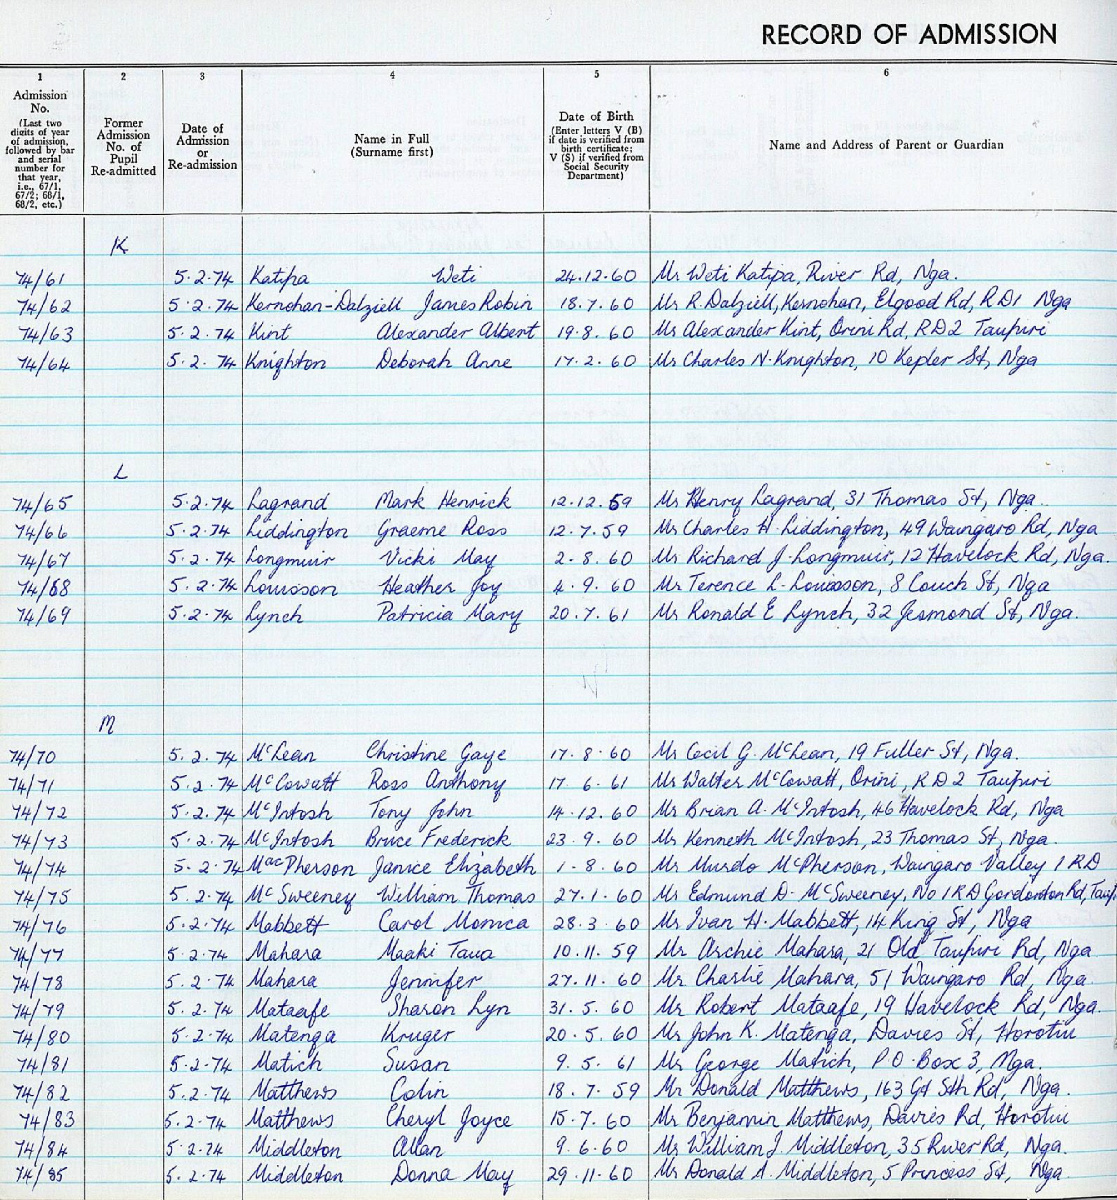 RECORD OF ADMISSION
1 2 3 4 5 6
Admission No. (Last two digits of year of admission, followed by bar and serial number for that year, i.e., 67/1, 67/2; 68/1, 68/2, etc.) Former Admission No. of Pupil Re-admitted Date of Admission or Re-admission Name in Full (Surname first) Date of Birth (Enter letters V (B) if date is verified from birth certificate; V (S) if verified from Social Security Department) Name and Address of Parent or Guardian
K
74/61 5.2.74 Katipa Weti 24.12.60 Mr Weti Katipa, River Rd, Nga.
74/62 5.2.74 Kernohan-Dalziell James Robin 18.7.60 Mr R. Dalziell, Kernohan, Elgood Rd, RD1 Nga
74/63 5.2.74 Kint Alexander Albert 19.8.60 Mr Alexander Kint, Orini Rd, RD2 Taupiri
74/64 5.2.74 Knighton Deborah Anne 17.2.60 Mr Charles N. Knighton, 10 Kepler St, Nga
L
74/65 5.2.74 Lagrand Mark Henrick 12.12.59 Mr Henry Lagrand, 31 Thomas St, Nga.
74/66 5.2.74 Liddington Graeme Ross 12.7.59 Mr Charles H. Liddington, 49 Waingaro Rd, Nga
74/67 5.2.74 Longmuir Vicki May 2.8.60 Mr Richard J. Longmuir, 12 Havelock Rd, Nga.
74/68 5.2.74 Louisson Heather Joy 4.9.60 Mr Terence L. Louisson, 8 Couch St, Nga
74/69 5.2.74 Lynch Patricia Mary 20.7.61 Mr Ronald E Lynch, 32 Jesmond St, Nga.
M
74/70 5.2.74 McLean Christine Gaye 17.8.60 Mr Cecil G. McLean, 19 Fuller St, Nga.
74/71 5.2.74 McCowatt Ross Anthony 17.6.61 Mr Walter McCowatt, Orini, RD2 Taupiri
74/72 5.2.74 McIntosh Tony John 14.12.60 Mr Brian A. McIntosh, 46 Havelock Rd, Nga
74/73 5.2.74 McIntosh Bruce Frederick 23.9.60 Mr Kenneth McIntosh, 23 Thomas St, Nga.
74/74 5.2.74 MacPherson Janice Elizabeth 1.8.60 Mr Murdo McPherson, Waingaro Valley 1 RD
74/75 5.2.74 McSweeney William Thomas 27.1.60 Mr Edmund D. McSweeney, No 1 RD Gordonton Rd,
74/76 5.2.74 Mabbett Carol Monica 28.3.60 Mr Ivan H. Mabbett, 14 King St, Nga
74/77 5.2.74 Mahara Maaki Taua 10.11.59 Mr Archie Mahara, 21 Old Taupiri Rd, Nga
74/78 5.2.74 Mahara Jennifer 27.11.60 Mr Charlie Mahara, 51 Waingaro Rd, Nga.
74/79 5.2.74 Mataafe Sharon Lyn 31.5.60 Mr Robert Mataafe, 19 Havelock Rd, Nga.
74/80 5.2.74 Matenga Kruger 20.5.60 Mr John K. Matenga, Davies St, Horotiu
74/81 5.2.74 Matich Susan 9.5.61 Mr George Matich, P.O. Box 3, Nga.
74/82 5.2.74 Matthews Colin 18.7.59 Mr Donald Matthews, 163 Gt Sth Rd, Nga.
74/83 5.2.74 Matthews Cheryl Joyce 15.7.60 Mr Benjamin Matthews, Davies Rd, Horotiu
74/84 5.2.74 Middleton Allan 9.6.60 Mr William J Middleton, 35 River Rd, Nga.
74/85 5.2.74 Middleton Donna May 29.11.60 Mr Donald A. Middleton, 5 Princess St, Nga.